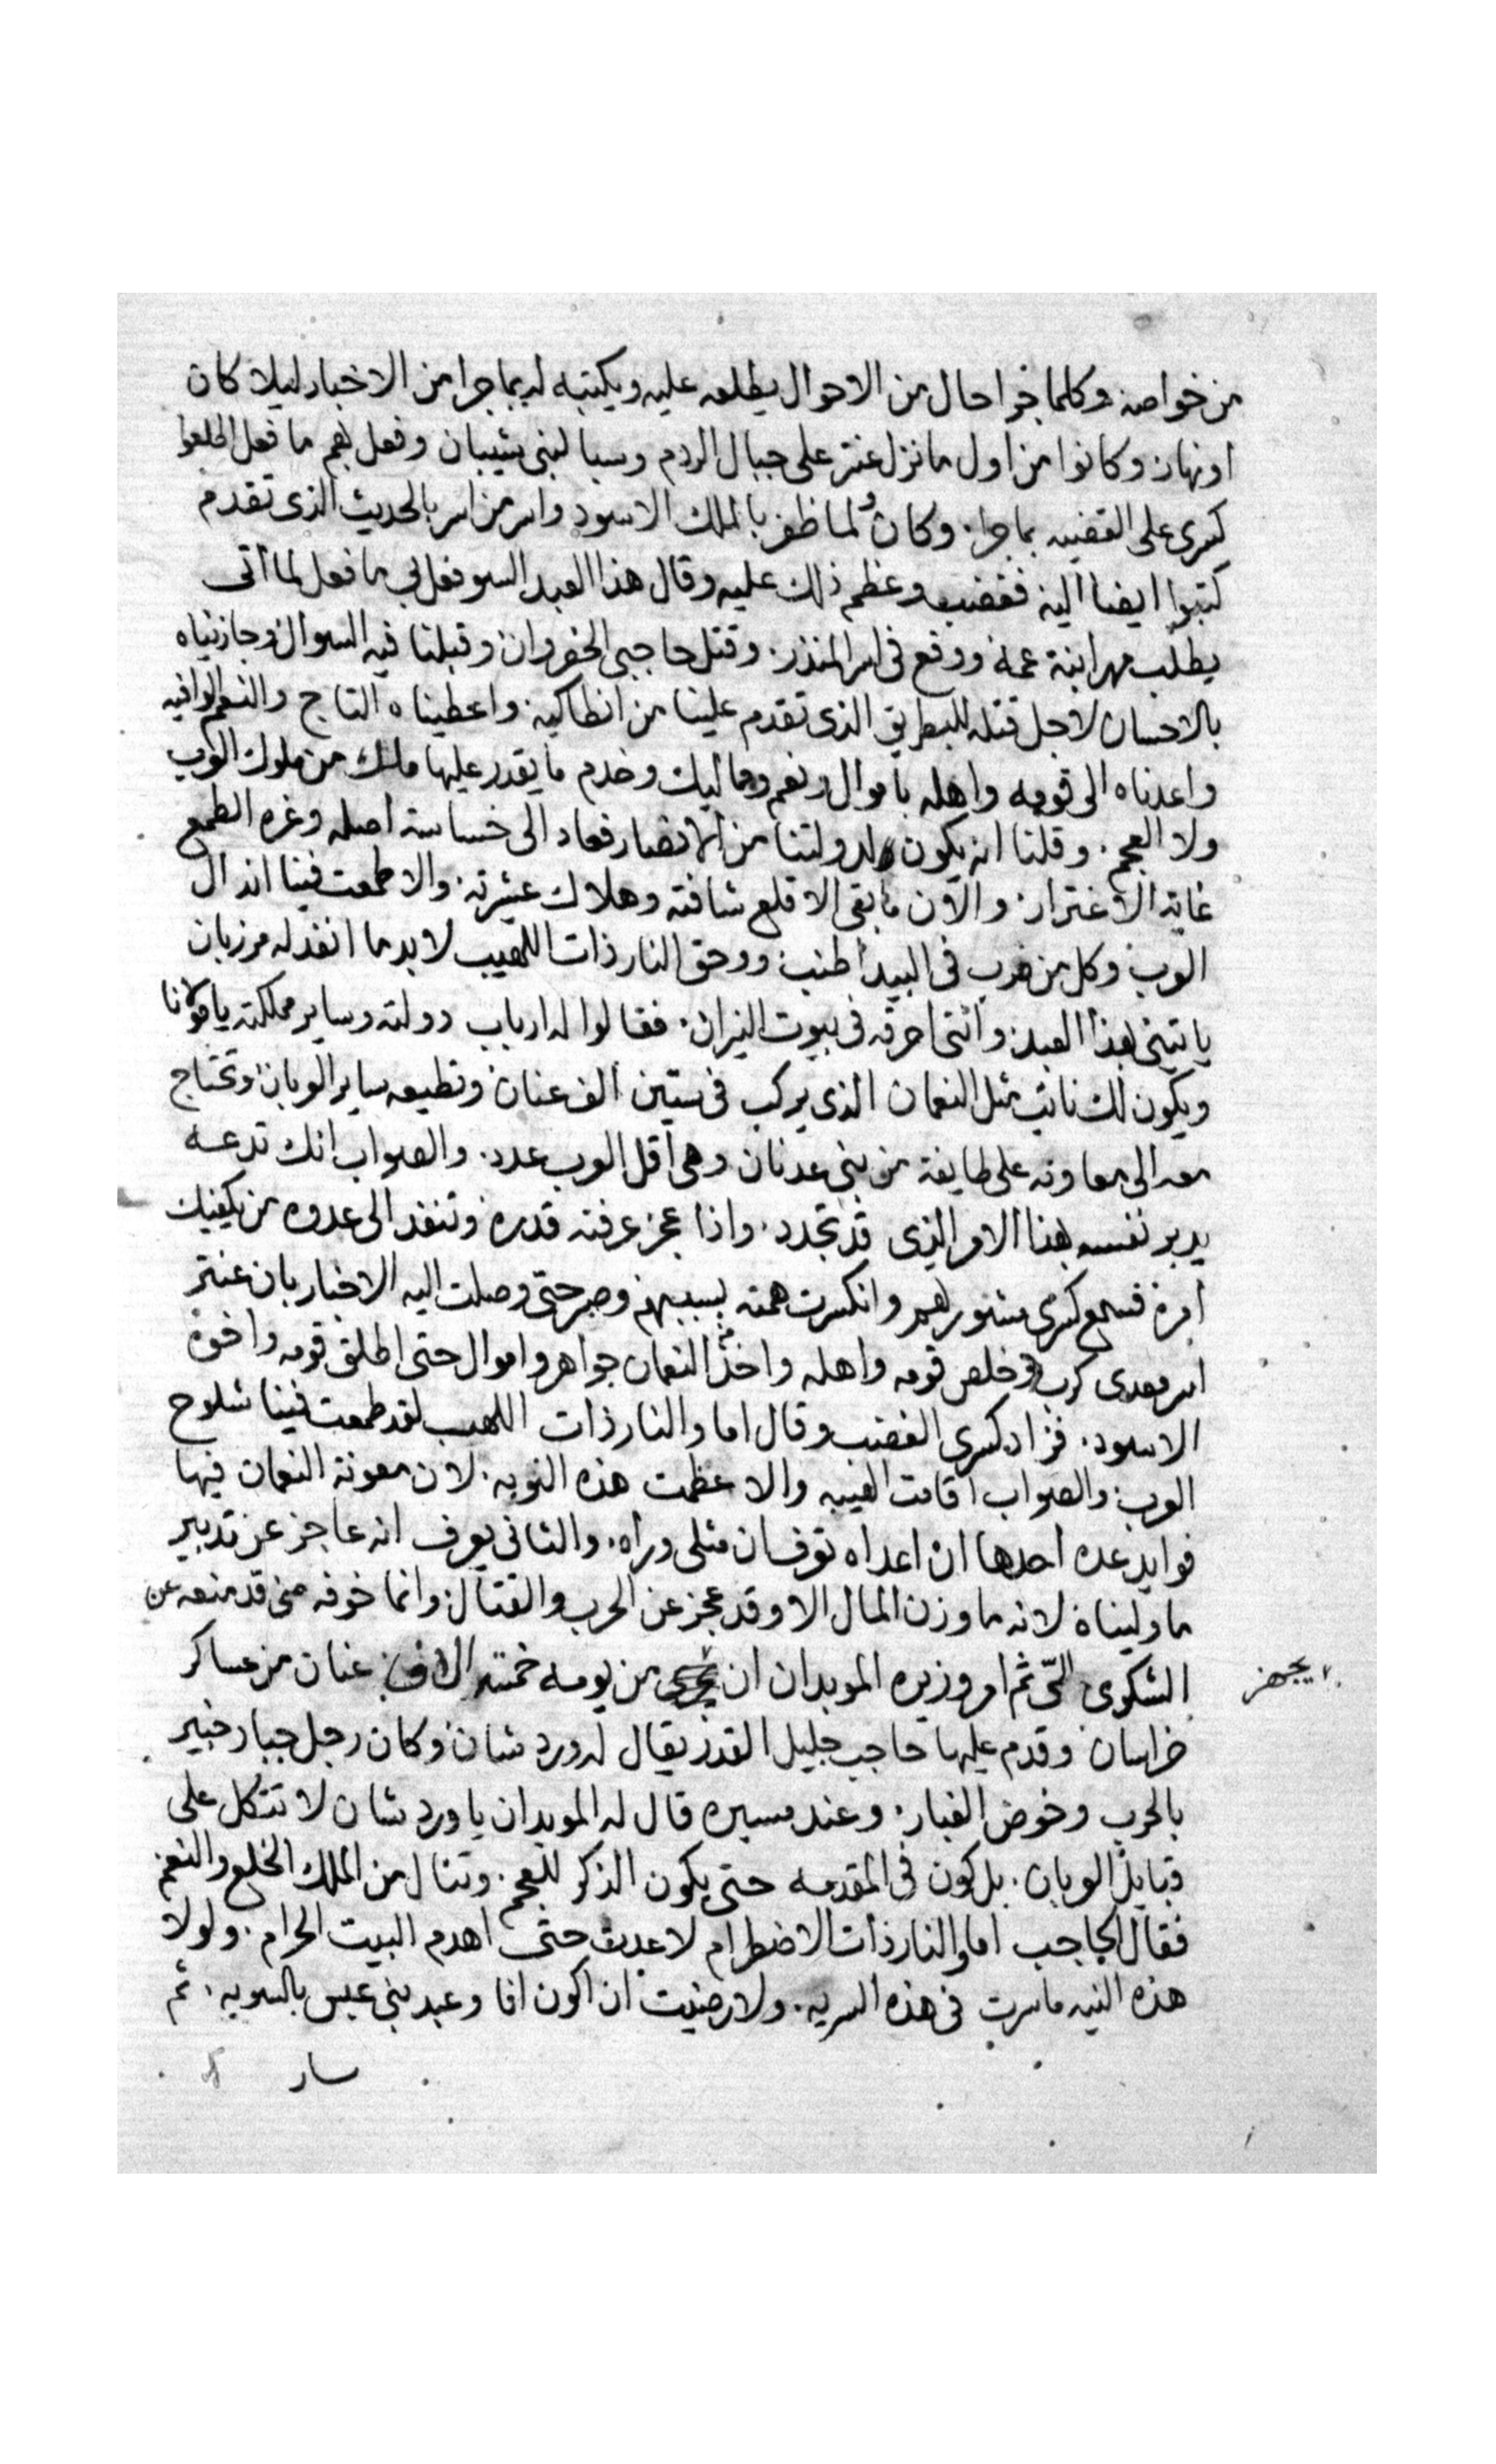 من خواصه وكلما جرا حال من الاحوال يطلعه عليه ويكتبه له بما جرا من الاخبار ليلا كان
او نهار وكانوا من اول ما نزل عنتر على جبال الردم وسبا لبنى شيبان وفعل بهم ما فعل اطلعوا
كسرى على القضيه بما جرا. وكان ولما ظفر بالملك الاسود واسر من اسر بالحديث الذى تقدم
كتبوا ايضا اليه فغضب وعظم ذلك عليه وقال هذا العبد السو فعل بي ما فعل لما أتى
يطلب مهر ابنة عمه ووقع فى اسر المنذر. وقتل حاجبى الخسروان وقبلنا فيه السوال وجازيناه
بالاحسان لاجل قتله للبطريق الذى تقدم علينا من انطاكيه. واعطيناه التاج والنعم الوافيه
واعدناه الى قومه واهله باموال ونعم ومماليك وخدم ما يقدر عليها ملك من ملوك العرب
ولا العجم. وقلنا انه يكون لدولتنا من الانصار فعاد الى خساسة اصله وغره الطمع
غاية الاغترار. والآن ما بقى الا قلع شافته وهلاك عشيرته. والا طمعت فينا اندال
العرب وكل من ضرب فى البيدا طنب ووحق النار ذات اللهيب لا بد ما انفد له مرزبان
ياتينى بهذا العبد وأنى احرقه فى بيوت النيران. فقالوا له ارباب دولته وساير مملكته يا مولانا
ويكون لك نائب مثل النعمان الذى يركب فى ستين الف عنان وتطيعه ساير العربان وتحتاج
معه الى معاونه على طايفة من بنى عدنان وهى أقل العرب عدد. والصواب انك تدعه
يدبر نفسه بهذا الامر الذى قد تجدد. واذا عجز عرفته قدره وتنفد الى عدوه من يكفيك
امره فسمع كسرى مشورهم وانكسرت همته بسببهم وصبر حتى وصلت اليه الاخبار بان عنتر
اسر معدى كرب وخلص قومه واهله واخذ من النعمان جواهر واموال حتى اطلق قومه واخوه
الاسود. فزاد كسرى الغضب وقال اما والنار ذات اللهب لقد طمعت فينا شلوح
العرب والصواب اقامت الهيبه والا عظمت هذه النوبه. لان معونة النعمان فيها
فوايد عده احدها ان اعداه توفسان مثلى وراه. والثانى يعرف انه عاجز عن تدبير
ما وليناه لانه ما وزن المال الا وقد عجز عن الحرب والقتال وانما خوفه منى قد منعه عن
الشكوى الىّ ثم امر وزيره الموبدان ان من يومه خمسة الاف عنان من عساكر
يجهز
خراسان وقدم عليها حاجب جليل القدر يقال له ورد شان وكان رجل جبار خبير
بالحرب وخوض الغبار. وعند مسيره قال له الموبدان يا ورد شان لا تتكل على
قبايل العربان. بل كون فى المقدمه حتى يكون الذكر للعجم. وتنال من الملك الخلع والنعم
فقال الحاجب اما والنار ذات الاضطرام لا عدت حتى اهدم البيت الحرام. ولولا
هذه النيه ما سرت فى هذه السريه. ولا رضيت ان اكون انا وعبد بنى عبس بالسويه. ثم
سار